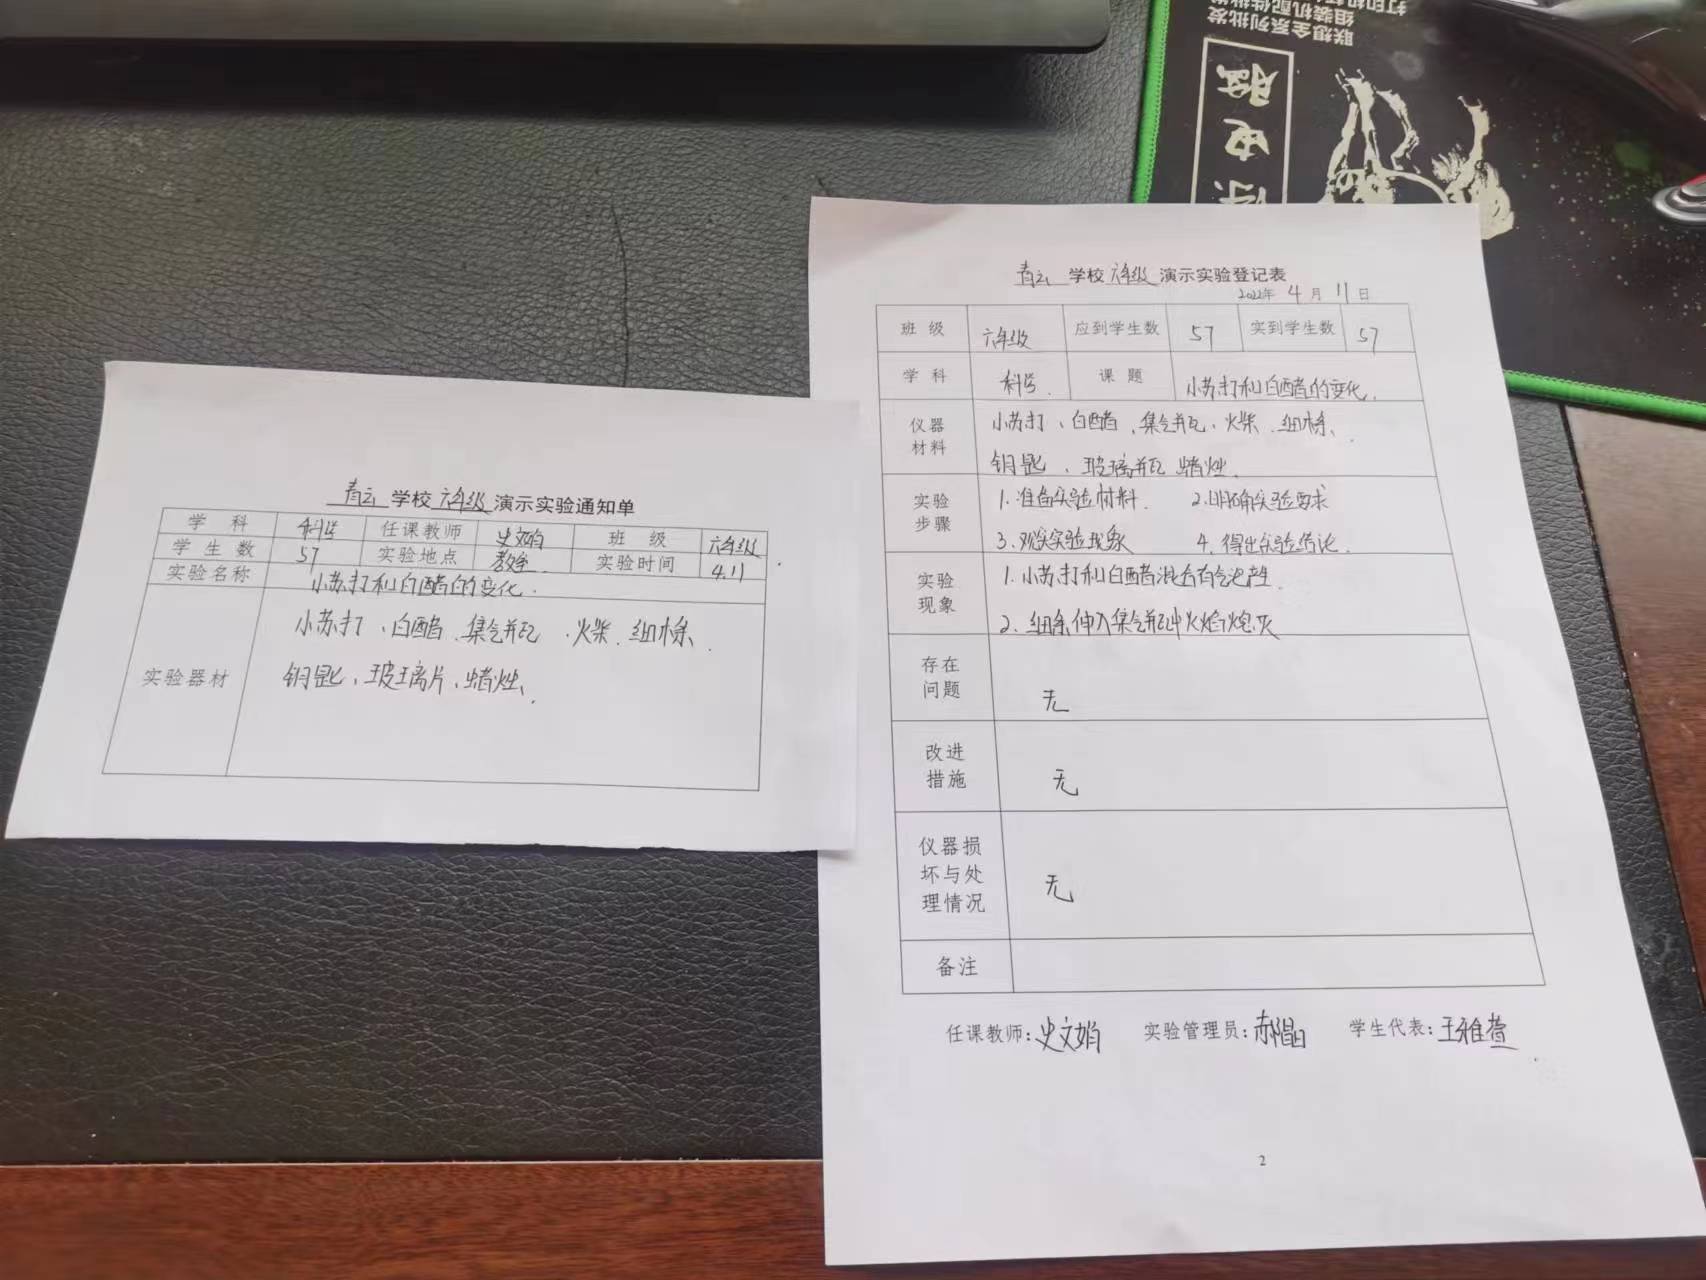 联想全系列批发
组装机配件批发
电脑
青云 学校 六年级 演示实验通知单
学科 科学 任课教师 史文娟 班级 六年级
学生数 57 实验地点 教室 实验时间 4.11
实验名称 小苏打和白醋的变化.
实验器材 小苏打、白醋、集气瓶、火柴、细木条、
钥匙、玻璃片、蜡烛、
青云 学校 六年级 演示实验登记表
2022年 4月 11日
班级 六年级 应到学生数 57 实到学生数 57
学科 科学. 课题 小苏打和白醋的变化.
仪器材料 小苏打、白醋、集气瓶、火柴、细木条、
钥匙、玻璃瓶 蜡烛.
实验步骤 1.准备实验材料. 2.明确实验要求
3.观察实验现象 4.得出实验结论.
实验现象 1.小苏打和白醋混合有气泡产生.
2.细条伸入集气瓶中火焰熄灭
存在问题 无
改进措施 无
仪器损坏与处理情况 无
备注
任课教师:史文娟 实验管理员: 学生代表:王雅萱
2